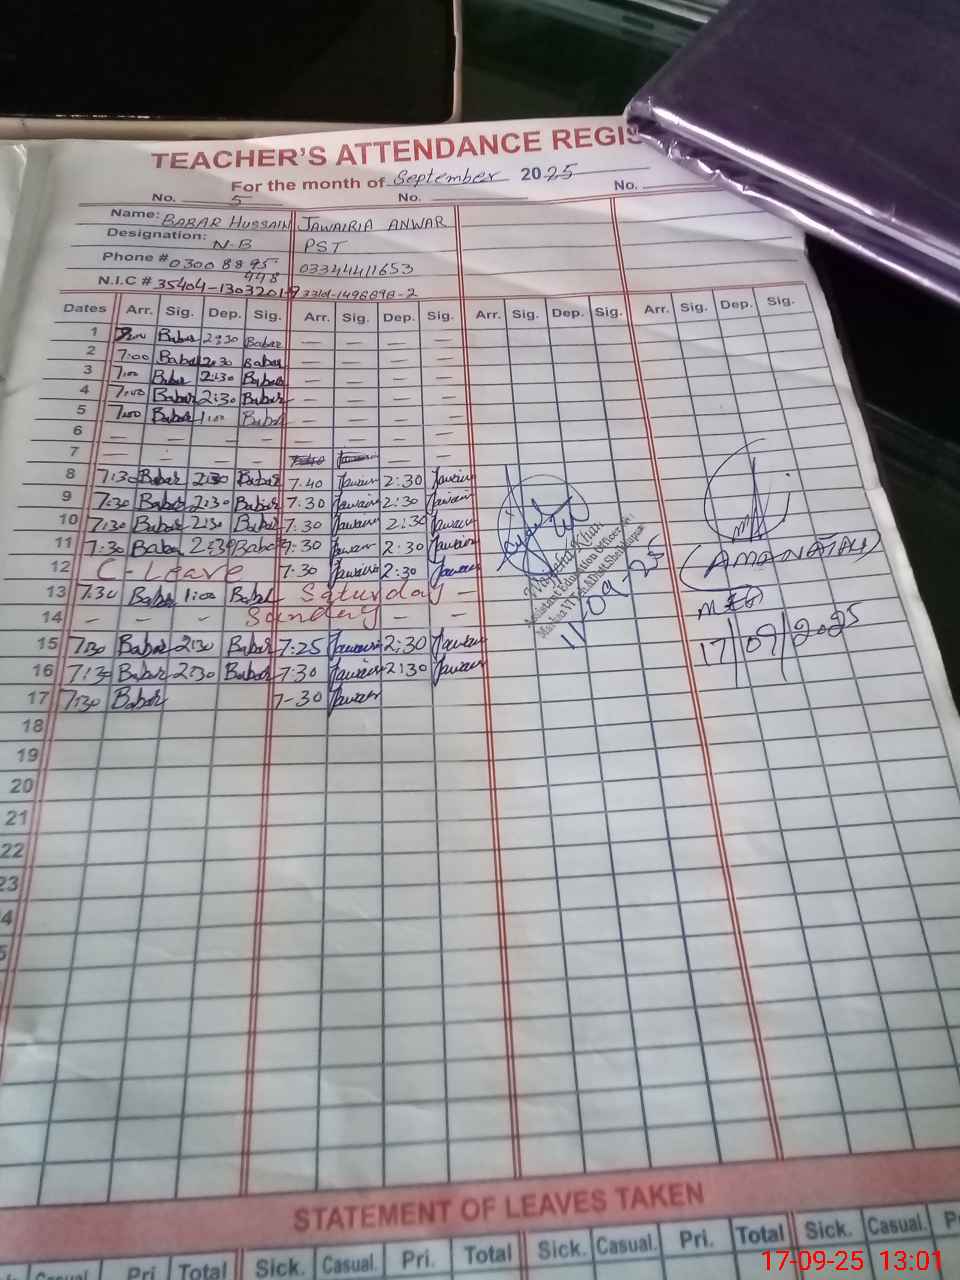 TEACHER'S ATTENDANCE REGIS
For the month of September 2025
No. 5 No. No.
Name: BABAR HUSSAIN JAWAIRIA ANWAR
Designation: N-B PST
Phone # 0300 8895 448 03344411653
N.I.C # 35404-1303201-9
Dates Arr. Sig. Dep. Sig. Arr. Sig. Dep. Sig. Arr. Sig. Dep. Sig. Arr. Sig. Dep. Sig.
1 7:00 Babar 2:30 Babar — — — —
2 7:00 Babar 2:30 Babar — — — —
3 7:00 Babar 2:30 Babar — — — —
4 7:00 Babar 2:30 Babar — — — —
5 7:00 Babar 1:00 Babar — — — —
6 — — — — — — — —
7 — — — — — —
8 7:30 Babar 2:30 Babar 7:40 Jawairia 2:30 Jawairia
9 7:30 Babar 2:30 Babar 7:30 Jawairia 2:30 Jawairia
10 7:30 Babar 2:30 Babar 7:30 Jawairia 2:30 Jawairia
11 7:30 Babar 2:30 Babar 7:30 Jawairia 2:30 Jawairia
12 C-Leave 7:30 Jawairia 2:30 Jawairia
13 7:30 Babar 1:00 Babar - Saturday -
14 - - - Sunday - -
15 7:30 Babar 2:30 Babar 7:25 Jawairia 2:30 Jawairia
16 7:30 Babar 2:30 Babar 7:30 Jawairia 2:30 Jawairia
17 7:30 Babar 7-30 Jawairia
18
19
20
21
22
23
4
5
Assistant Education Officer
11/09-25
(AMANATALI)
17/09/2025
STATEMENT OF LEAVES TAKEN
Casual Pri. Total Sick. Casual. Pri. Total Sick. Casual. Pri. Total Sick. Casual. P
17-09-25 13:01